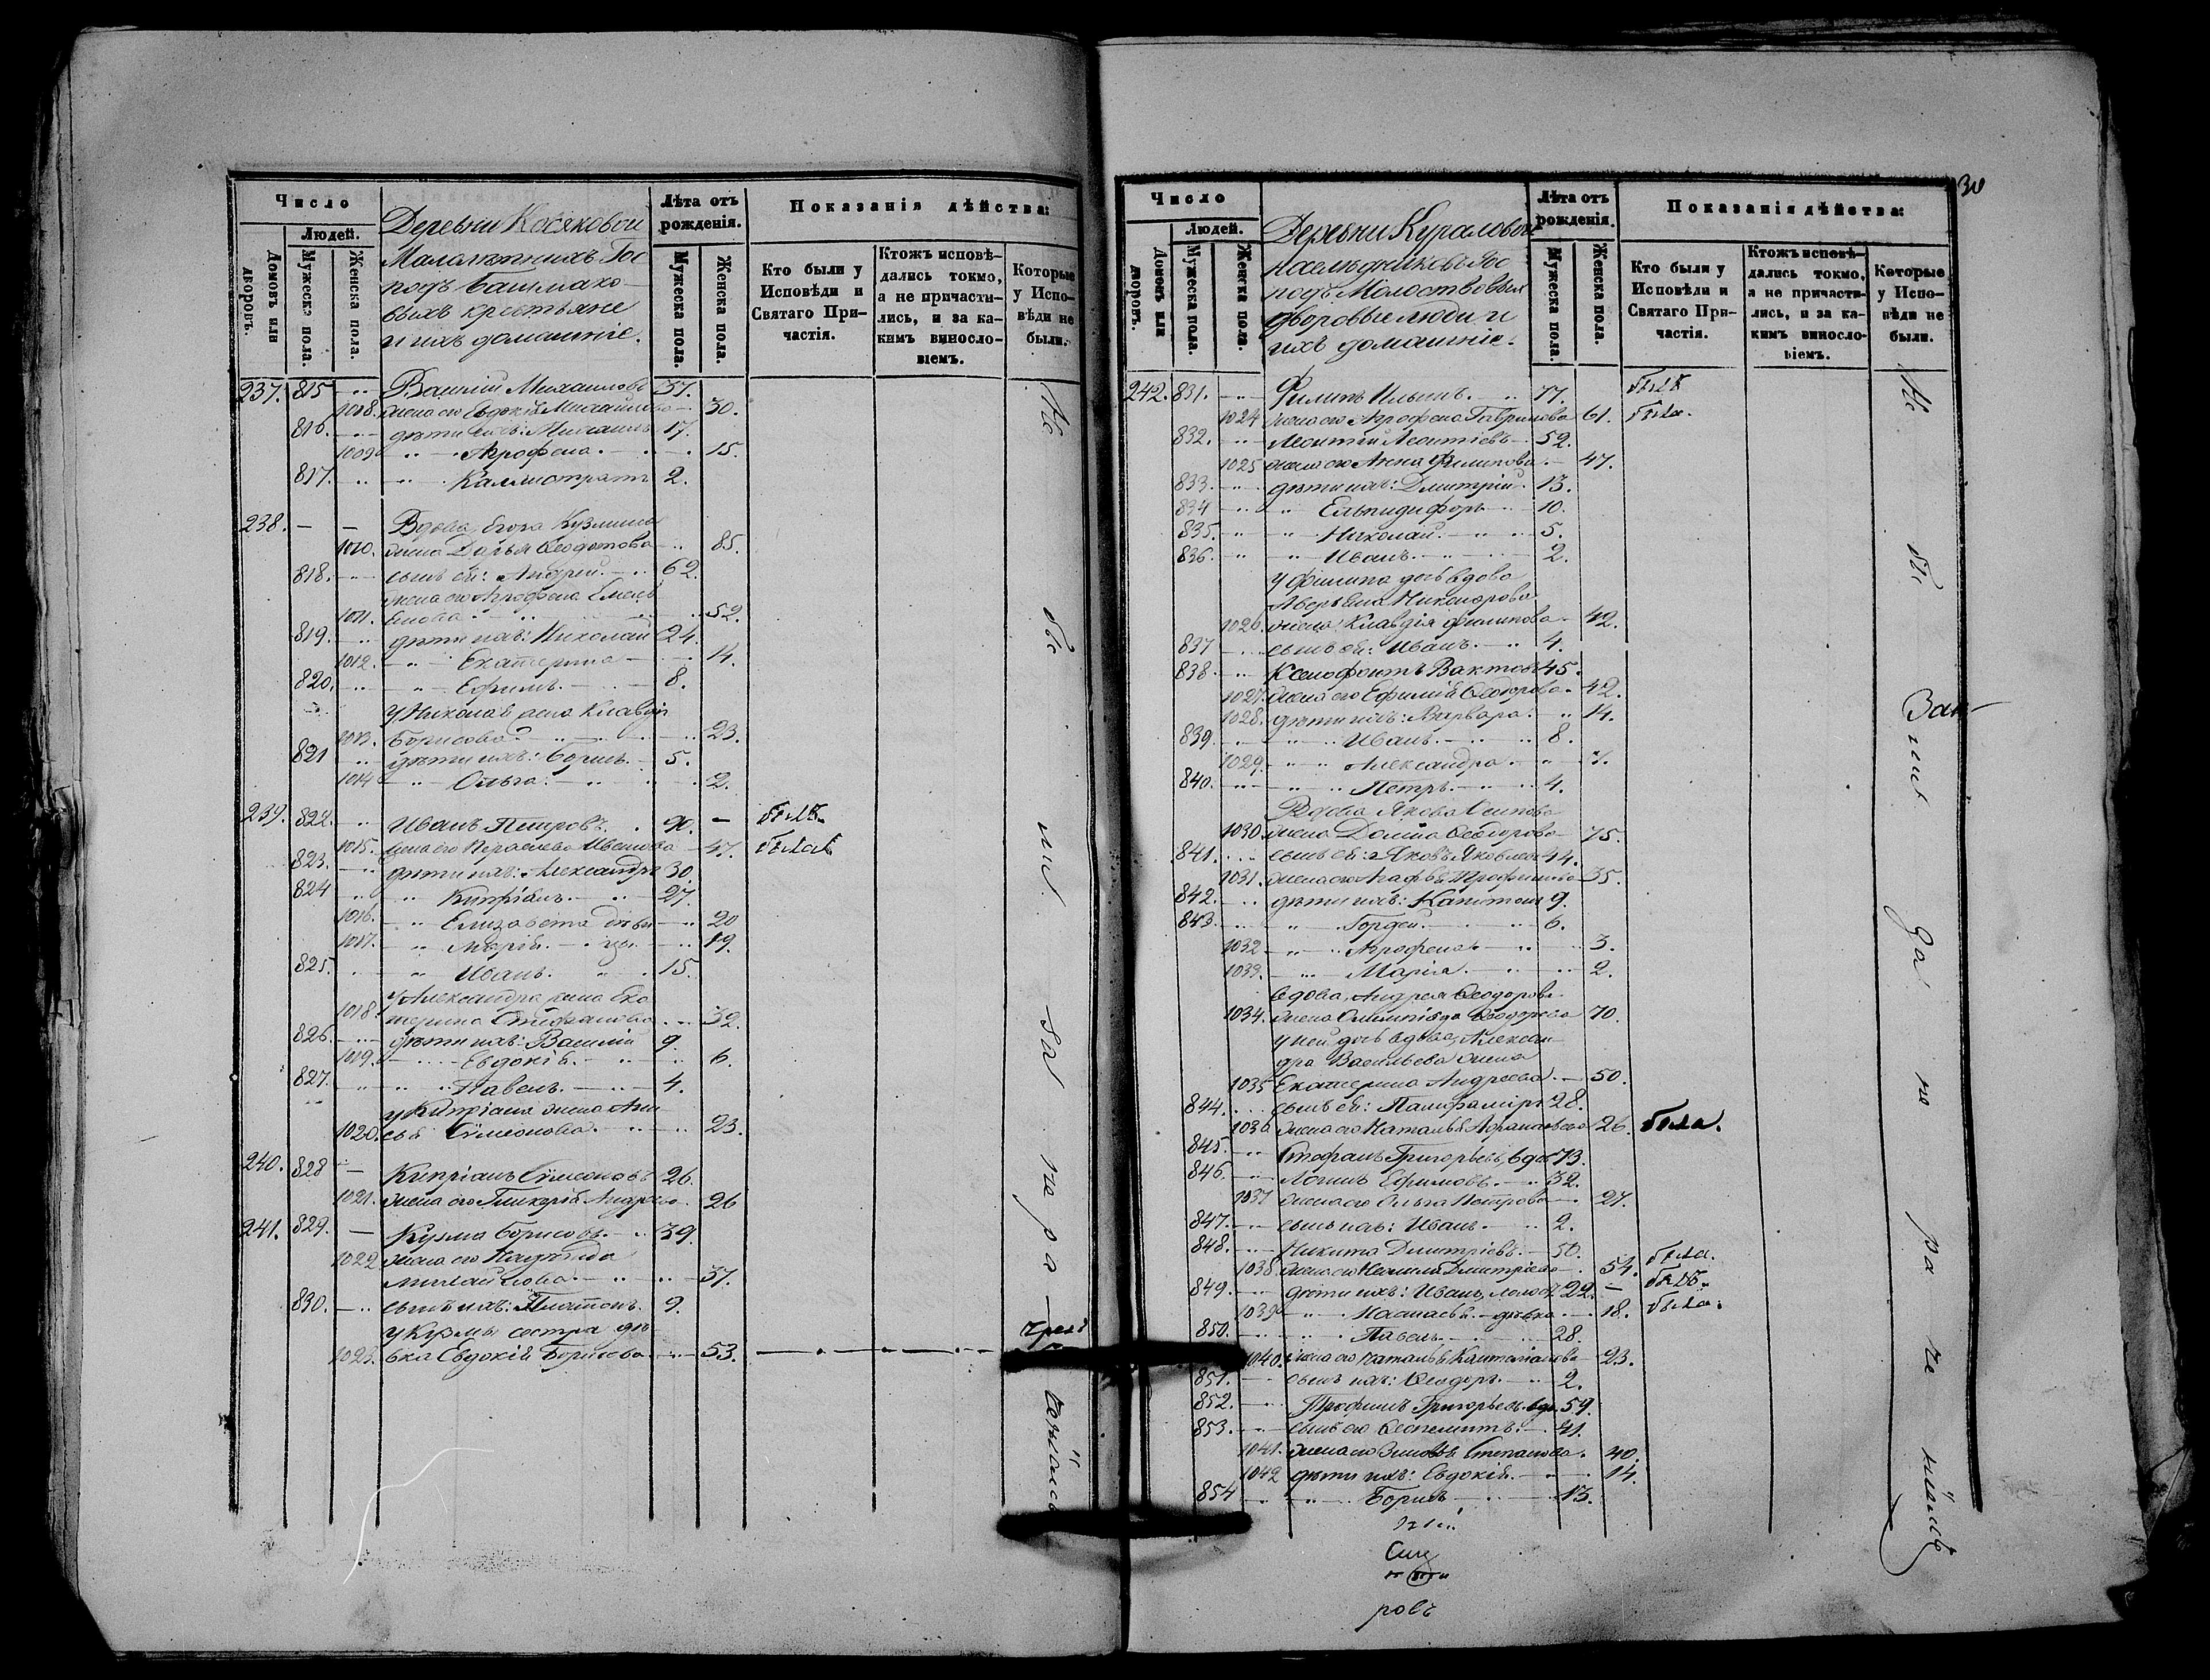 Число
Людей.
Домовъ или дворовъ.
Мужеска пола.
Женска пола.
Деревни Косяковой
Малолѣтнихъ Гос
подъ Башмако-
выхъ крестьяне
и ихъ домашніе.
Лѣта отъ рожденія.
Мужеска пола
Женска пола.
Показанія дѣйства:
Кто были у Исповѣди и Святаго При-частія.
Ктожъ исповѣ-дались токмо, а не причасти-лись, и за ка-кимъ винословіемъ.
Которые у Испо-вѣди не были.
237. 815 Василій Михаиловъ 37.
1008. жена его Евдокія Михайлова 30.
816. дѣти ихъ: Михаилъ 17.
1009 Агрофена 15.
817. Каллистратъ 2.
238. Вдова Егора Кузмина
1010. жена Дарья Ѳеодотова 85.
818. сынъ ей: Андрей 62.
жена его Агрофена Емель
1011. янова 52.
819. дѣти ихъ: Николай 24.
1012. Екатерина 14.
820. Ефимъ. 8.
У Николая жена Клавдія
1013. Борисова 23.
821 дѣти ихъ: Борисъ. 5.
1014 Ольга 2.
239. 822. Иванъ Петровъ. 90. былъ
1015. жена его Ивanова 47. была
823. дѣти ихъ: Александръ 30.
824 Кипріанъ. 27.
1016. Елизавета дѣви 20
1017. Марія цы 19.
825. Иванъ. 15.
У Александра жена Ека
1018. терина Стефанова 32.
826. дѣти ихъ: Василій 9.
1019. Евдокія 6.
827. Павелъ. 4.
У Кипріана жена Ани
1020. сья Сѵмеонова 23.
240. 828 Кипріанъ Сѵмеоновъ 26.
1021. жена его Гликерія Андрева 26
241. 829. Кузма Борисовъ 39.
1022 жена его Надежда
Михайлова 37.
830. сынъ ихъ: Платонъ. 9.
У Кузмы сестра дѣ
1023. вка Евдокія Борисова 53.
Не бы ли за не ра-
ченіемъ
30
Число
Людей.
Домовъ или дворовъ.
Мужеска пола.
Женска пола.
Деревни Кураловой
наслѣдниковъ Гос
подъ Молоствовыхъ
дворовые люди и
ихъ домашніе.
Лѣта отъ рожденія.
Мужеска пола.
Женска пола.
Показанія дѣйства:
Кто были у Исповѣди и Святаго При-частія.
Ктожъ исповѣ-дались токмо, а не причасти-лись, и за ка-кимъ винословіемъ.
Которые у Испо-вѣди не были.
242. 831. Филипъ Ильинъ. 77. былъ
1024 жена его Агрофена Гаврилова 61. была.
832. Леонтій Леонтіевъ 52.
1025 жена его Анна Филипова 47.
833. дѣти ихъ: Дмитрій 13.
834 Елпидифоръ 10.
835. Николай 5.
836. Иванъ. 2.
У Филипа дочь вдова
Аверьяна Никонорова
1026. жена Клавдія Филипова 42.
837 сынъ ей: Иванъ. 4.
838. Ксенофонтъ 45.
1027. жена его Ефимія Ѳеодорова 42.
1028. дѣти ихъ: Варвара 14.
839. Иванъ. 8.
1029. Александра 7.
840. Петръ. 4.
Вдова Якова Осипова
1030 жена Домна Ѳеодорова 75.
841. сынъ ей: Яковъ Яковлевъ 44.
1031. жена его Агафья Трофимова 35.
842. дѣти ихъ: Капитонъ 9.
843. Гордей 6.
1032 Агрофена 3.
1033. Марія 2.
вдова Андрея Ѳеодорова
1034. жена Олимпіада Ѳеодорова 70.
у ней дочь вдова, Алексан
дра Васильева жена
1035 Екатерина Андреева 50.
844. сынъ ей: 28.
1036 жена его Наталья 26. была.
845. Стефанъ Григорьевъ, вдов 73.
846. Логинъ Ефимовъ. 32.
1037 жена его Ольга Петрова 27.
847. сынъ ихъ: Иванъ. 2.
848. Никита Дмитріевъ 50.
1038. жена его Дмитріева 54. была.
849. дѣти ихъ: Иванъ, холост 22. былъ.
1039 дѣвка 18. была.
850. Павелъ 28.
1040. жена его Наталья 23.
851. сынъ ихъ: Ѳеодоръ. 2.
852. Трофимъ Григорьевъ вдв. 59.
853. сынъ его 41.
1041. жена его Степанова 40.
1042 дѣти ихъ: Евдокія 14.
854 Борисъ 13.
Не бы ли за не ра ченіемъ
ровъ